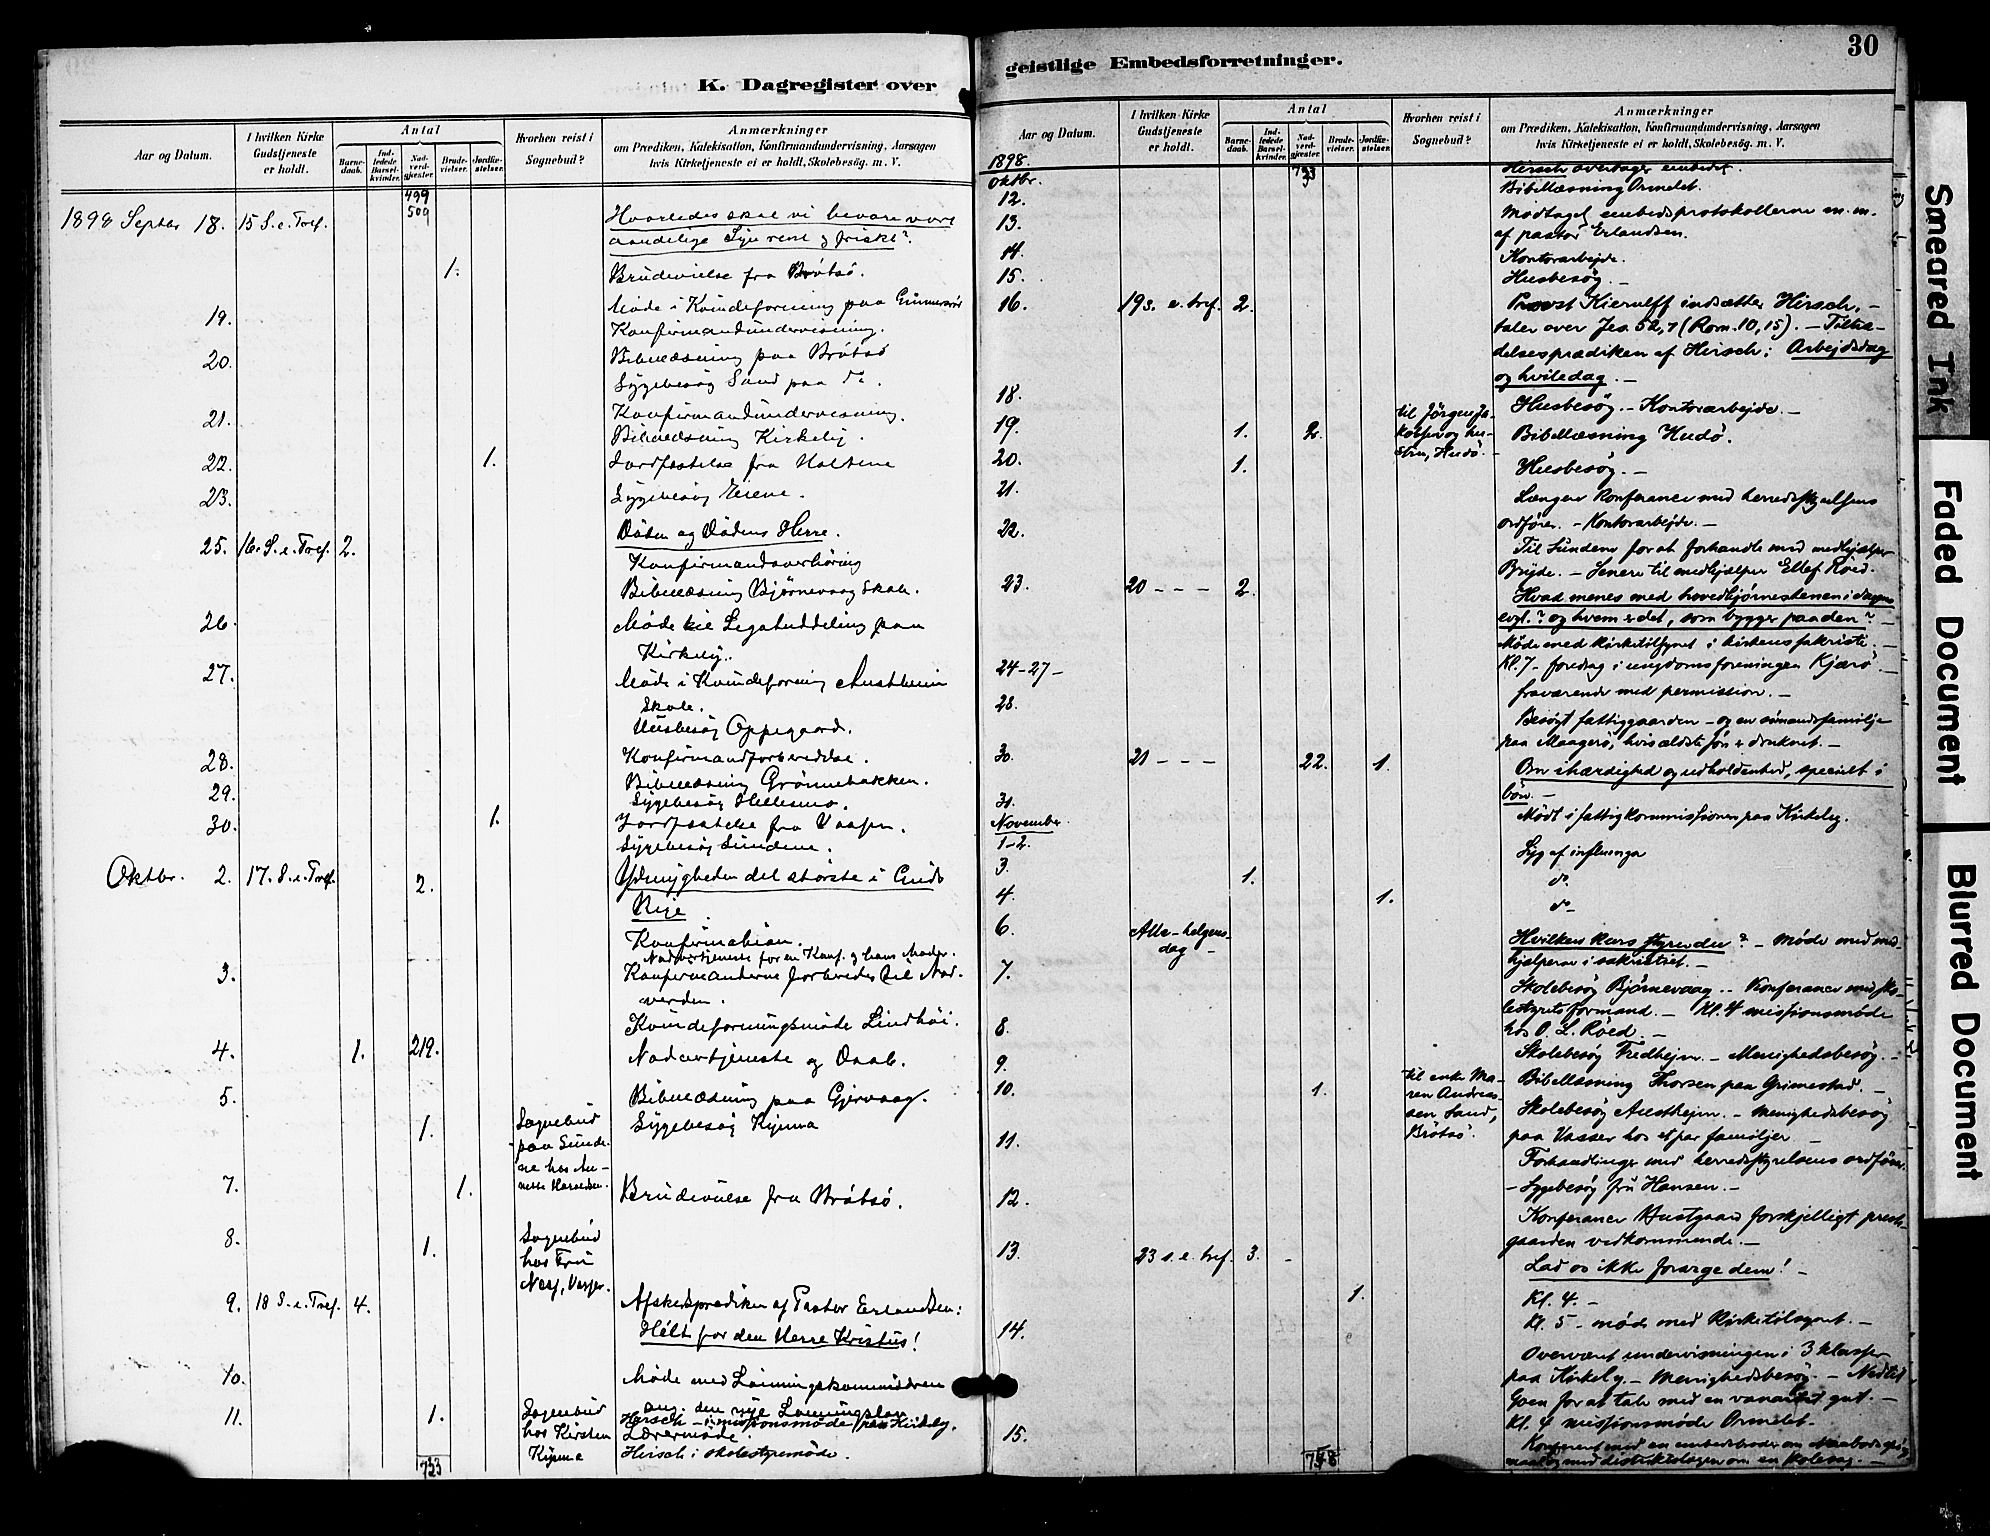 K. Dagregister over
Aar og Datum.
I hvilken Kirke
Gudstjeneste
er holdt.
Antal
Barne-
daab.
Ind-
ledede
Barsel-
kvinder.
Nad-
verd-
gjæster.
Brude-
vielser.
Jordfæ-
stelser.
Hvorhen reist i
Sognebud?
Anmærkninger
om Prædiken, Katekisation, Konfirmandundervisning, Aarsagen
hvis Kirketjeneste ei er holdt, Skolebesøg. m. V.
499
509
1898 Septbr 18. 15 S. e. Tref. Hvorledes skal vi bevare vort
aandelige Syn rent og friskt?
1. Brudevielse fra Brøtsø.
19. Møde i Kvindeforening paa
Konfirmandundervisning.
20. Bibellæsning paa Brøtsø
Sygebesøg Sand paa do.
21. Konfirmandundervisning.
Bibellæsning Kirkely.
22. 1. Jordfæstelse fra Holtene
23. Sygebesøg Eiene.
25. 16. S. e. Tref. 2. Døden og Dødens Herre.
Konfirmandoverhøring
Bibellæsning Bjørnevaag Skole.
26. Møde til Legatuddeling paa
Kirkely.
27. Møde i Kvindeforening Austheim
Skole.
Husbesøg Oppegaard.
28. Konfirmandforberedelse.
Bibellæsning Grønnebakken.
29. Sygebesøg Hellesmo.
30. 1. Jordfæstelse fra Vasser.
Sygebesøg Sundene.
Oktbr. 2. 17. S. e. Tref. 2. Ydmygheden det største i Guds
Rige
Konfirmation.
Nadvertjeneste for en Konf. og hans Moder.
3. Konfirmanterne forberedes til Nad-
verden.
Kvindeforeningsmøde Lindhøi.
4. 1. 219. Nadvertjeneste og Daab.
5. Bibellæsning paa Gjervaag.
1. Sognebud
paa Sunde-
ne hos An-
nette
Sygebesøg Kjynna
7. 1. Brudevielse fra Brøtsø.
8. 1. Sognebud
hos Fru
Næss, Vasser.
9. 18 S. e. Tref. 4. Afskedsprædiken af Pastor Erlandsen:
Hélt for den Herre Kristus!
10. Møde med Lønningskommissionen
ang. den nye Lønningslov
11. 1. Sognebud
hos Kirsten
Kjynna
Hirsch i missionsmøde paa Kirkely.
Lærermøde
Hirsch i skolestyremøde.
733
30
geistlige Embedsforretninger.
Aar og Datum.
I hvilken Kirke
Gudstjeneste
er holdt.
Antal
Barne-
daab.
Ind-
ledede
Barsel-
kvinder.
Nad-
verd-
gjæster.
Brude-
vielser.
Jordfæ-
stelser.
Hvorhen reist i
Sognebud?
Anmærkninger
om Prædiken, Katekisation, Konfirmandundervisning, Aarsagen
hvis Kirketjeneste ei er holdt, Skolebesøg. m. V.
1898.
Oktbr. 733 Hirsch overtager embedet.
12. Bibellæsning Ormelet.
13. Modtaget embedsprotokollerne m. m.
af pastor Erlandsen.
14. Kontorarbejde.
15. Husbesøg.
16. 19 s. e. tref. 2. Provst Kierulff indsætter Hirsch, –
taler over Jes 52, 7 (Rom. 10, 15). – Tiltræ-
delsesprædiken af Hirsch: Arbejdsdag
og hviledag. –
18. Husbesøg. – Kontorarbejde. –
19. 1. 2. til Jørgen Ja-
kobsen og hu-
stru, Hudø. Bibellæsning Hudø.
20. 1. Husbesøg. –
21. Længere konferance med herredsstyrelsens
ordfører. – Kontorarbejde. –
22. Til Sundene for at forhandle med medhjælper
Bryde. – Senere til medhjælper Ellef Røed.
23. 20 – – – 2. Hvad menes med hovedhjørnestenen i dagens
evgl.? og hvem er det, som bygger paa den? –
Møde med kirketilsynet i kirkens sakristi. –
Kl. 7 – foredrag i ungdomsforeningen Kjærø. –
24–27 – fraværende med permission. –
28. Besøgt fattiggaarden – og en sømandsfamilje
paa Maagerø, hvis ældste søn er druknet. –
30. 21 – – – 22. 1. Om ihærdighed og udholdenhed, specielt i
bøn. –
31. Mødt i fattigkommissionen paa Kirkely.
November.
1–2. Syg af influenza
3. 1. do.
4. 1. do
6. Alle-helgens-
dag – Hvilken kurs styrer du? – Møde med med-
hjælperne i sakristiet. –
7. Skolebesøg Bjørnevaag. – Konferance med sko-
lestyrets formand. – Kl. 4 missionsmøde
hos O. L. Røed. –
8. Skolebesøg Fredhejm. – Menighedsbesøg. –
9. Bibellæsning Thorsen paa Grimestad. –
10. 1. til enke Ma-
ren Andreas-
sen Sand,
Brøtsø. Skolebesøg Austhejm. – Menighedsbesøg
paa Vasser hos et par familjer. –
11. Forhandlinger med herredsstyrelsens ordfører.
– Sygebesøg fru Hansen. –
12. Konferance forskjelligt preste-
gaarden vedkommende. –
13. 23 s. e. tref. 3. – Lad os ikke forarge dem! –
1. Kl. 4. –
Kl. 5 – møde med Kirketilsynet. –
14. Overværet undervisningen i 3 klasser
paa Kirkely. – Menighedsbesøg. –
for at tale med en vanartet gut. –
Kl. 4 missionsmøde Ormelet.
15. Konfereret med en embedsbroder om
og med distriktslægen om en skolesag. –
758
Smeared Ink
Faded Document
Blurred Document